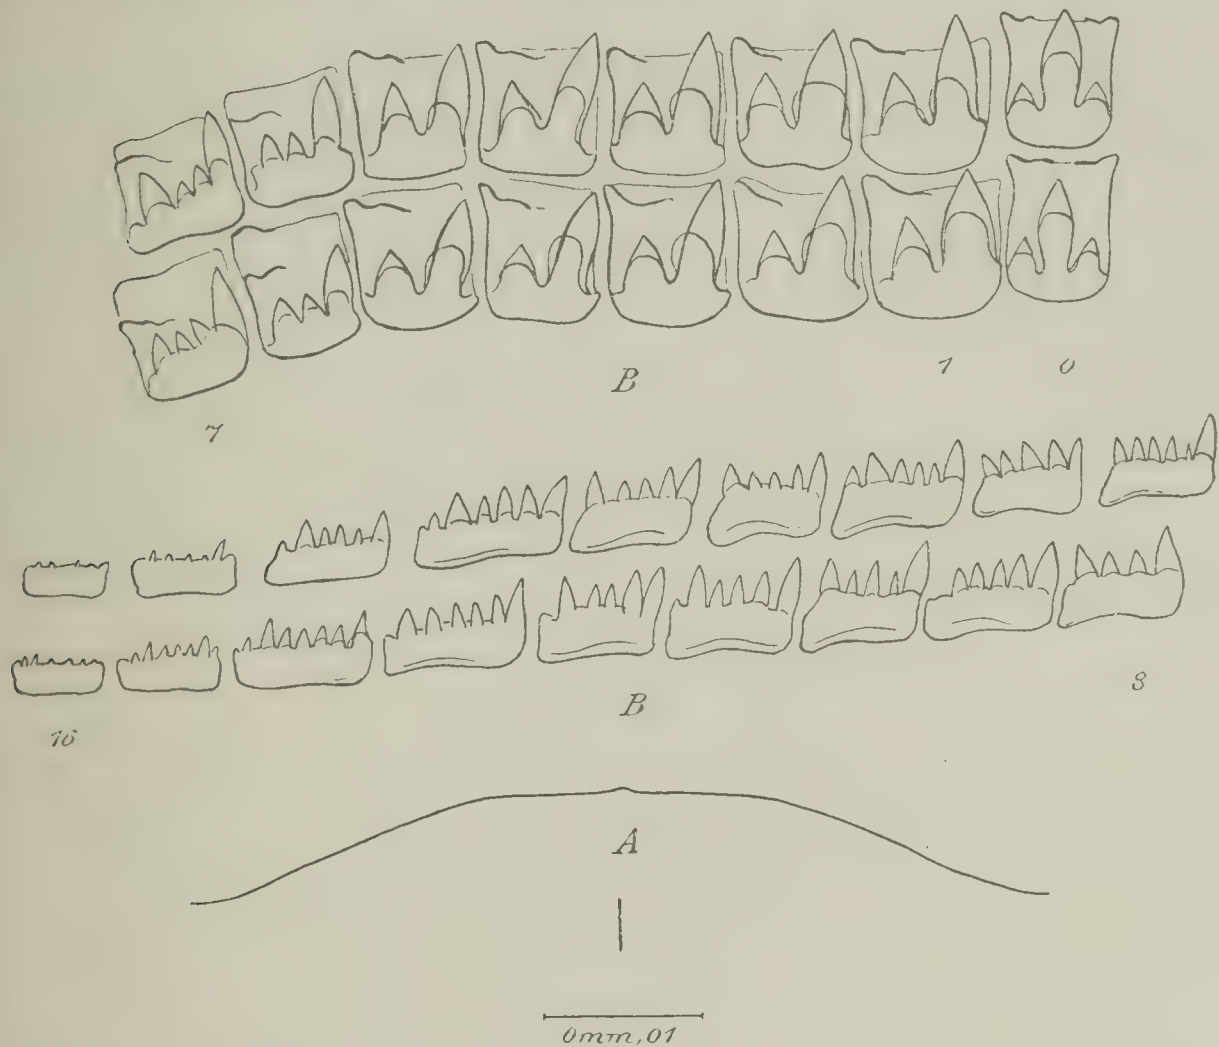 B
1 0
7
8
B
16
A
0mm,01